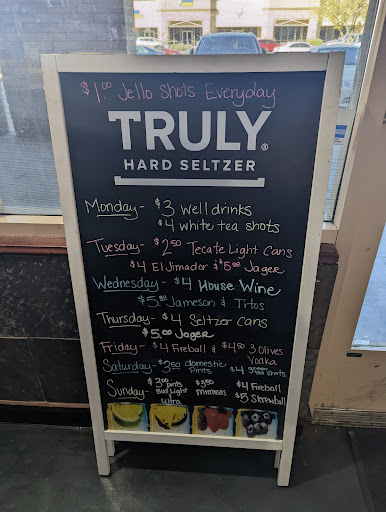 $1.00 Jello Shots Everyday
TRULY®
HARD SELTZER
Monday - $3 well drinks
$4 white tea shots
Tuesday - $2.50 Tecate Light Cans
$4 El Jimador & $5.00 Jager
Wednesday - $4 House Wine
$5.00 Jameson & Titos
Thursday - $4 Seltzer cans
$5.00 Jager
Friday - $4 Fireball & $4.50 3 Olives
Vodka
Saturday - $3.50 domestic
Pints $4 green tea shots
Sunday - $3.00 pints $3.50 $4 Fireball
Bud Light mimosas $5 Skrewball
Ultra